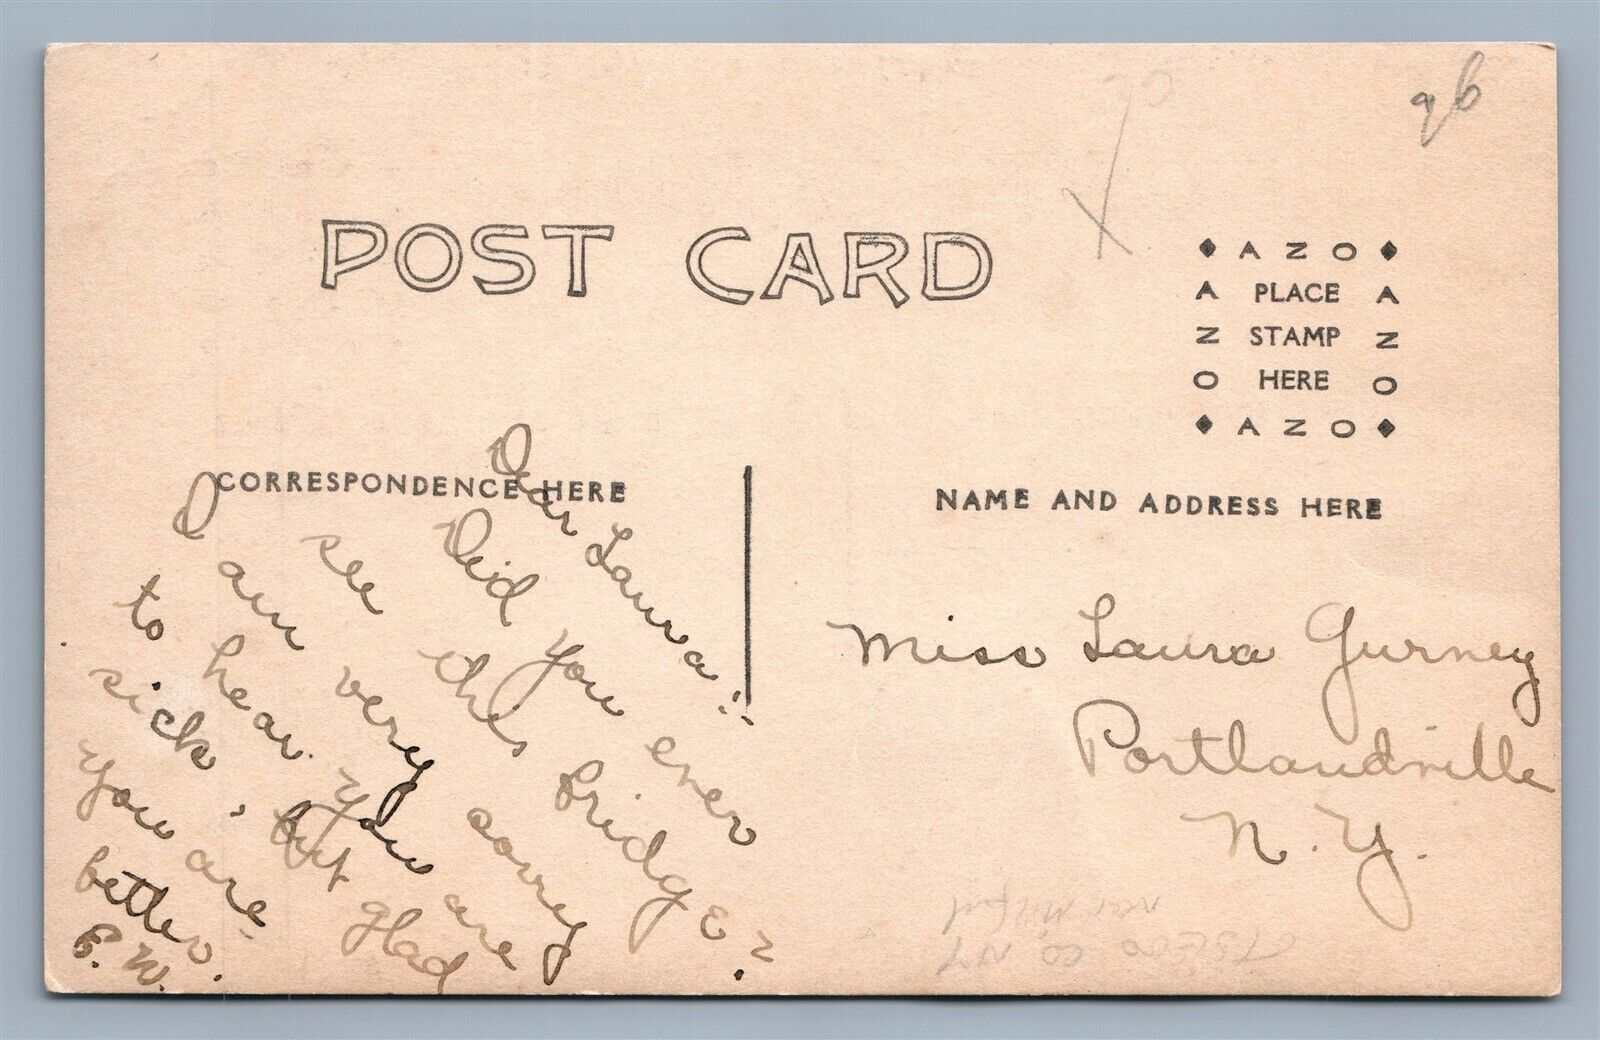 96
POST CARD
AZO
A PLACE A
Z STAMP Z
O HERE O
AZO
CORRESPONDENCE HERE
NAME AND ADDRESS HERE
Dear Laura:-
Did you ever
see this bridge?
I am very sorry
to hear you are
sick, but glad
you are
better.
E. W.
Miss Laura Gurney
Portlandville
N. Y.
near Milford
OTSEGO CO NY